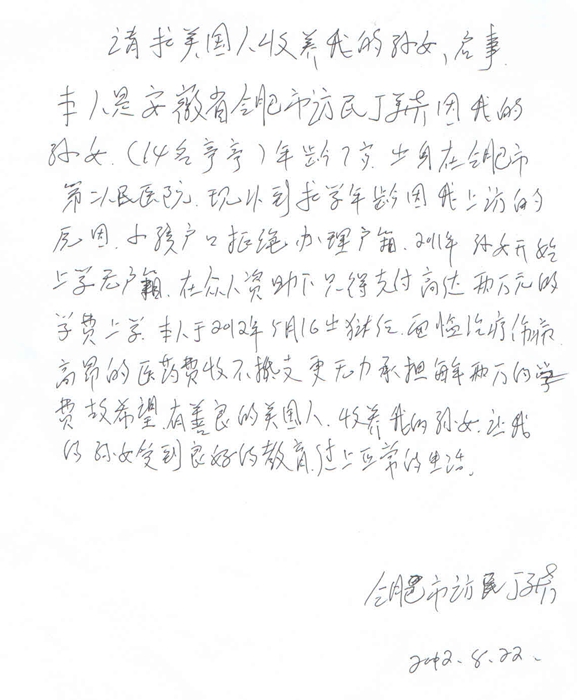 请求美国人收养我的孙女、启事
本人是安徽省合肥市访民丁 因我的
孙女.(14名亭亭)年龄7岁.出身在合肥市
第二人民医院.现以到求学年龄因我上访的
原因.小孩户口拒绝办理户籍.2011年孙女开始
上学无户籍.在众人资助下只得支付高达两万元的
学费上学.本人于2012年5月16出狱后.面临治疗伤病
高昂的医药费收不撑支更无力承担每年两万的学
费故希望.有善良的美国人.收养我的孙女.让我
的孙女受到良好的教育.过上正常的生活.
合肥市访民丁
2012.8.22.